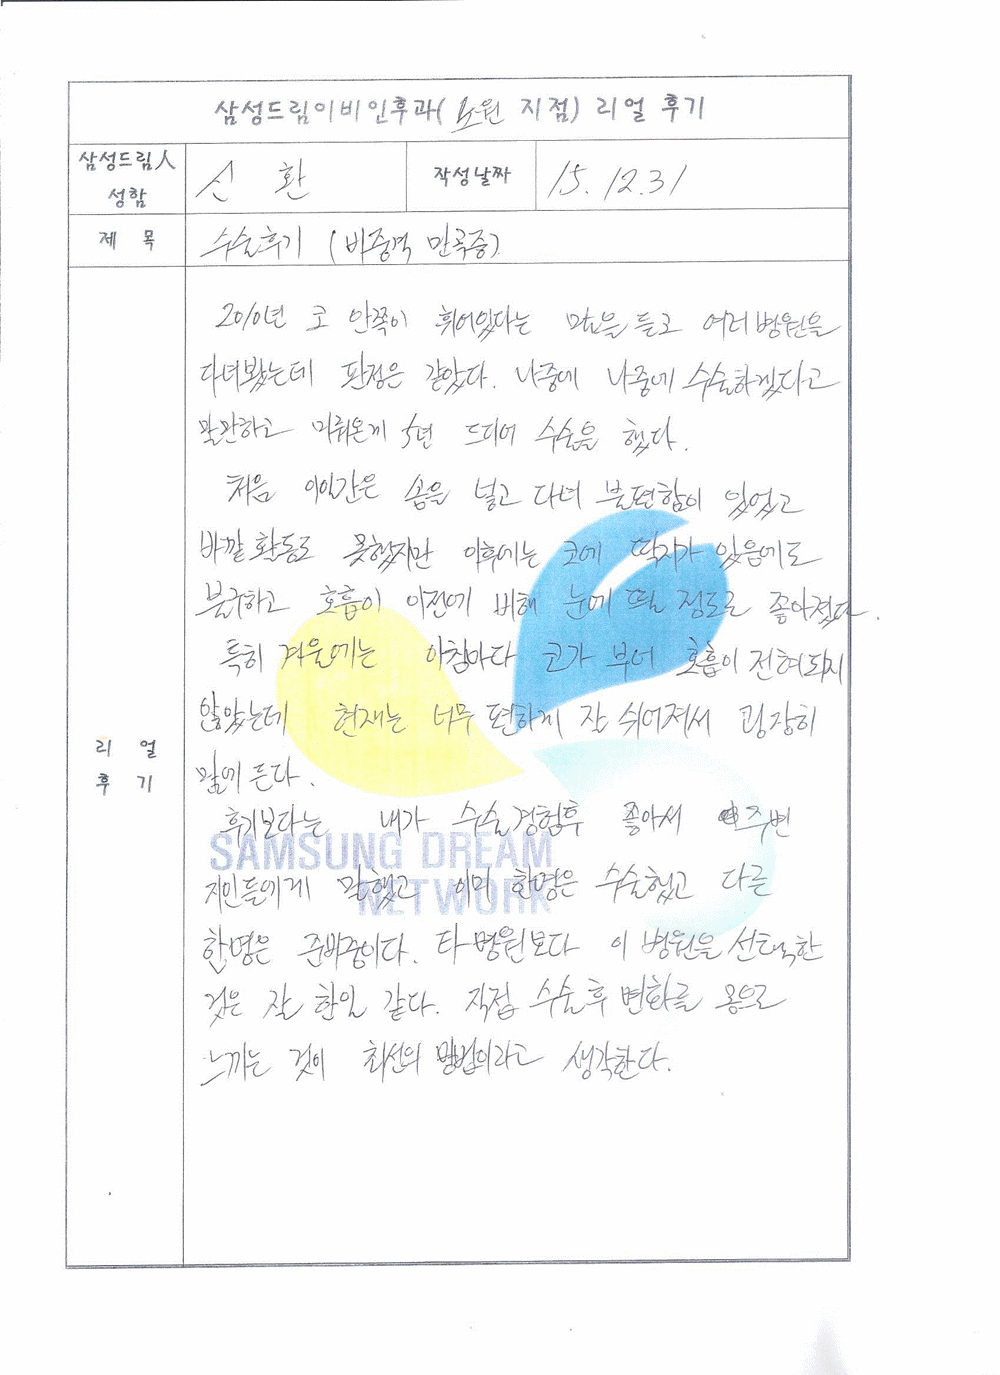 삼성드림이비인후과(노원 지점) 리얼 후기
삼성드림人 성함
신 환
작성날짜
15. 12. 31
제 목
수술후기 (비중격 만곡증)
리 얼 후 기
2010년 코 안쪽이 휘어있다는 말을 듣고 여러병원을
다녀봤는데 판정은 같았다. 나중에 나중에 수술하겠다고
말만하고 미뤄온게 5년 드디어 수술을 했다.
처음 이일간은 솜을 넣고 다녀 불편함이 있었고
바깥 활동도 못했지만 이후에는 코에 딱지가 있음에도
불구하고 호흡이 이전에 비해 눈에 띌 정도로 좋아졌다.
특히 겨울에는 아침마다 코가 부어 호흡이 전혀되지
않았는데 현재는 너무 편하게 잘 쉬어져서 굉장히
맘에 든다.
후기보다는 내가 수술경험후 좋아서 주변
지인들에게 말했고 이미 한명은 수술했고 다른
한명은 준비중이다. 타 병원보다 이 병원을 선택한
것은 잘 한일 같다. 직접 수술후 변화를 몸으로
느끼는 것이 최선의 방법이라고 생각한다.
SAMSUNG DREAM
NETWORK